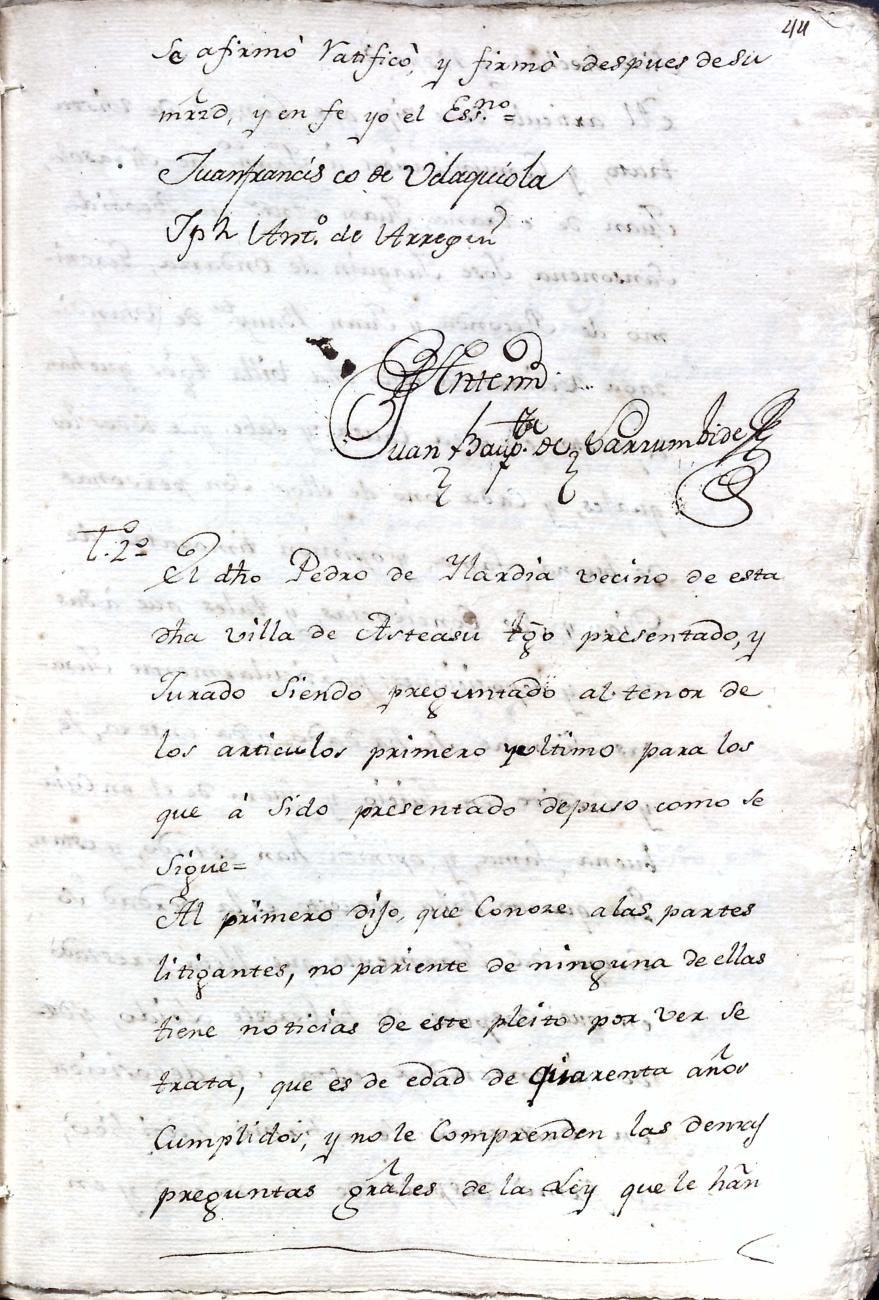 44
Se afirmò Ratificò, y firmò despues de su
mrzd, y en fe yo el Ess.no =
Juanfrancisco de Vdaquiola
Jph Ant.o de Arregui
Antemi
Juan Baup.ta de Larrumbide
t.o 2.o
El dho Pedro de Ylardia vecino de esta
dha villa de Asteasu tgo presentado, y
Jurado Siendo preguntado al tenor de
los articulos primero yultimo para los
que à Sido presentado depuso como se
Sigue=
Al primero dijo, que Conoze alas partes
litigantes, no pariente de ninguna de ellas
tiene noticias de este pleito por ver se
trata, que es de edad de quarenta años
Cumplidos, y no le Comprenden las demas
preguntas grãles de la Ley que le hãn